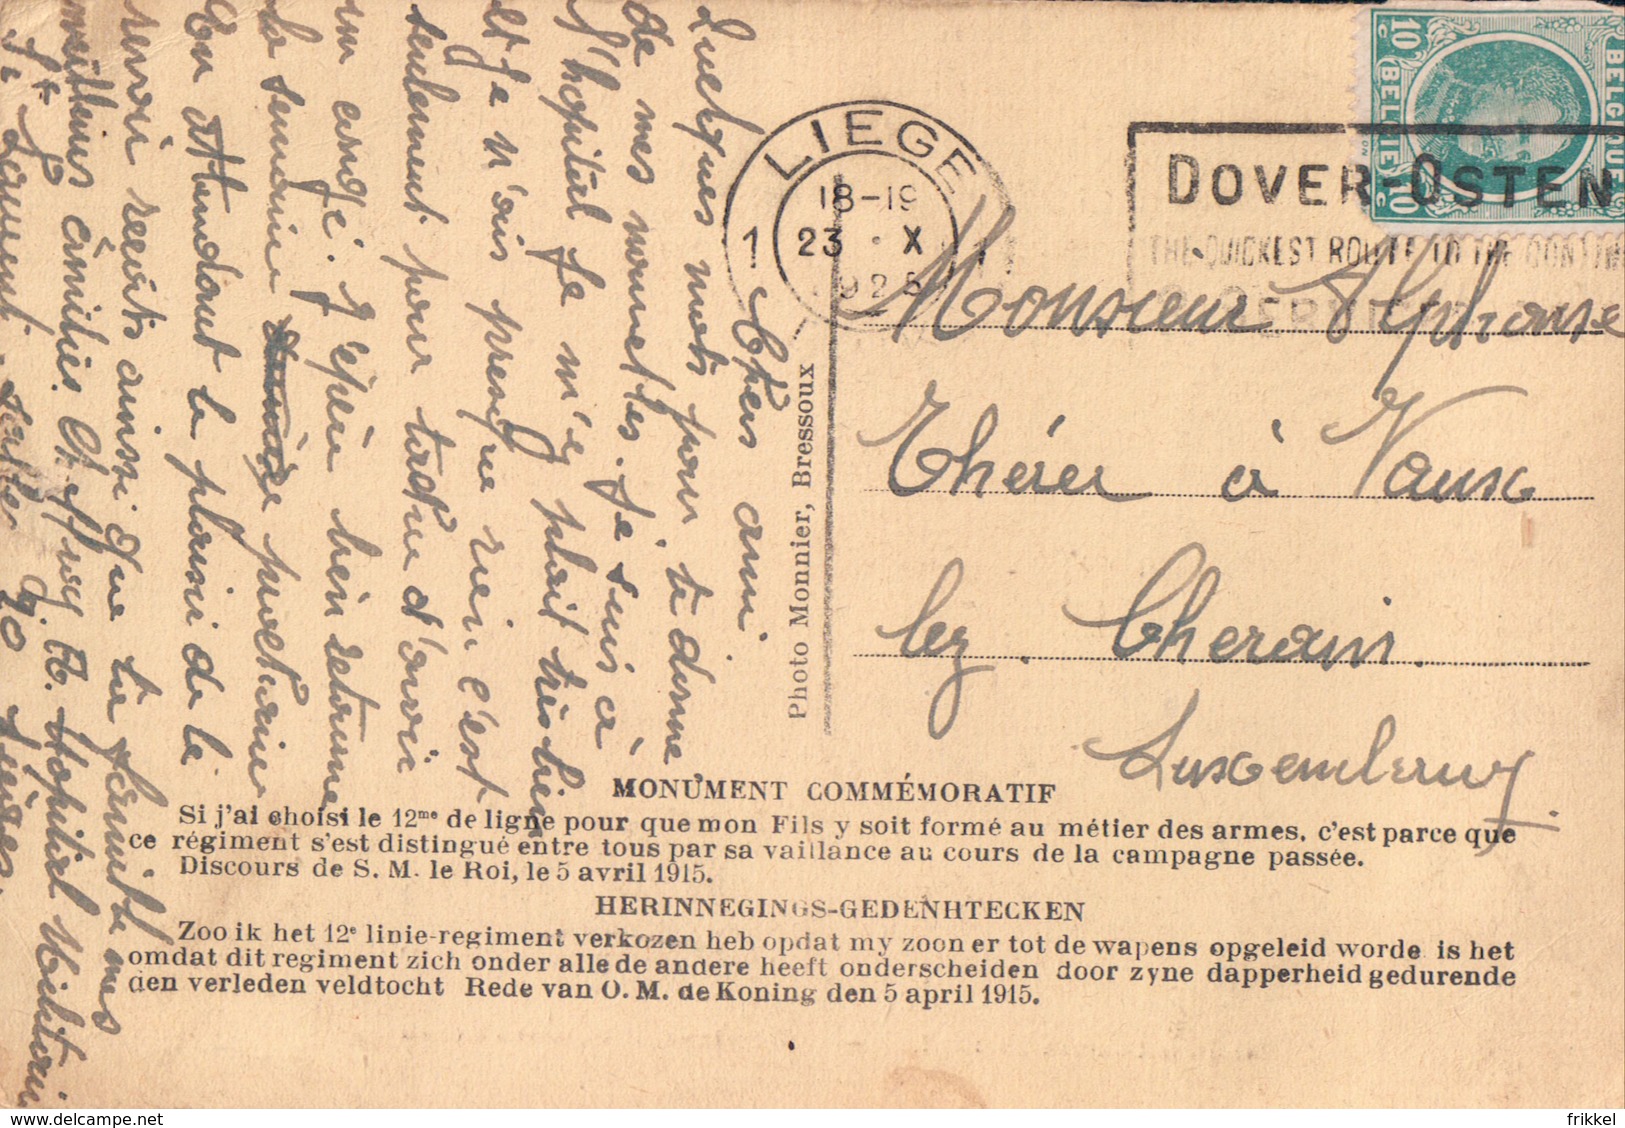 Cher ami
Quelques mots pour te donne
de mes nouvelles. Je suis à
l'hopital Je m'y plait très bien
et Je n'ais presque rien c'est
seulement pour tachu d'avoir
un congé. J'épère bien retourne
la semaine prochaine
En attendant le plaisir de te
revoir reçois ainsi que ta famille mes
meilleurs amitiés
Hopital Militair
St Laurent Liège
LIEGE
1
18-19
23 · X
925
DOVER-OSTEN
THE QUICKEST ROUTE TO THE CONTIN
BELGIQUE
BELGIE
10 c
10 c
Monsieur Alphonse
Thérer à Vaux
lez Cherain
Luxembourg
Photo Monnier, Bressoux
MONUMENT COMMÉMORATIF
Si j'ai choisi le 12me de ligne pour que mon Fils y soit formé au métier des armes, c'est parce que
ce régiment s'est distingué entre tous par sa vaillance au cours de la campagne passée.
Discours de S. M. le Roi, le 5 avril 1915.
HERINNEGINGS-GEDENHTECKEN
Zoo ik het 12e linie-regiment verkozen heb opdat my zoon er tot de wapens opgeleid worde is het
omdat dit regiment zich onder alle de andere heeft onderscheiden door zyne dapperheid gedurende
den verleden veldtocht Rede van O. M. de Koning den 5 april 1915.
frikkel